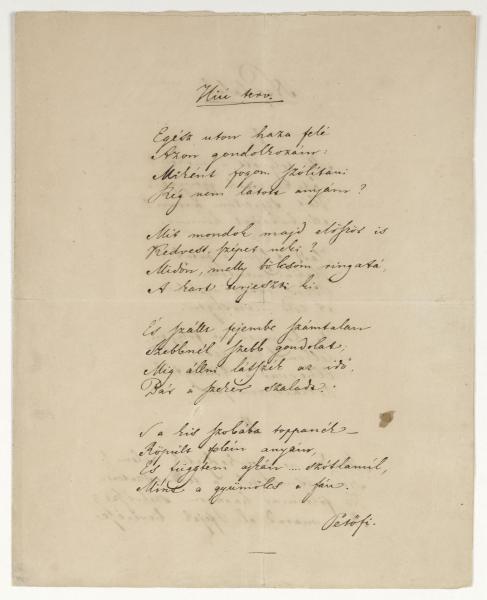 Hiú terv.
Egész uton haza felé
Azon gondolkozám:
Miként fogom szólitani
Rég nem látott anyám?
Mit mondok majd először is
Kedvest, szépet neki?
Midőn, melly bölcsőm ringatá,
A kart terjeszti ki.
És szállt fejembe számtalan
Szebbnél szebb gondolat,
Mig állni látszék az idő,
Bár a szekér szaladt.
S a kis szobába toppanék –
Röpült felém anyám,
És függtem ajkán ... szótlanúl,
Mint a gyümölcs a fán.
Petőfi.